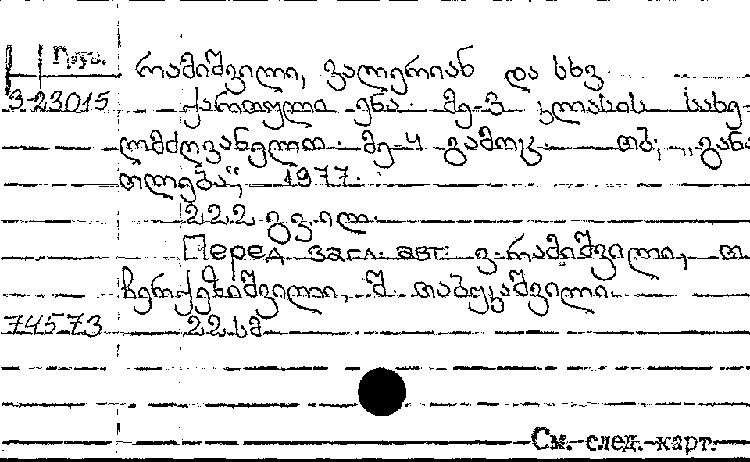 Груз.
რამიშვილი, ვალერიან და სხვ
3-23015 ქართული ენა. მე-3 კლასის სახე-
ლმძღვანელო. მე-4 გამოც. თბ., „განა
თლება“, 1977.
222 გვ. ილ.
Перед загл. авт. ვ. რამიშვილი, თ.
ჩერქეზიშვილი, შ. თაბუკაშვილი.
74573 22 სმ
См. след. карт.